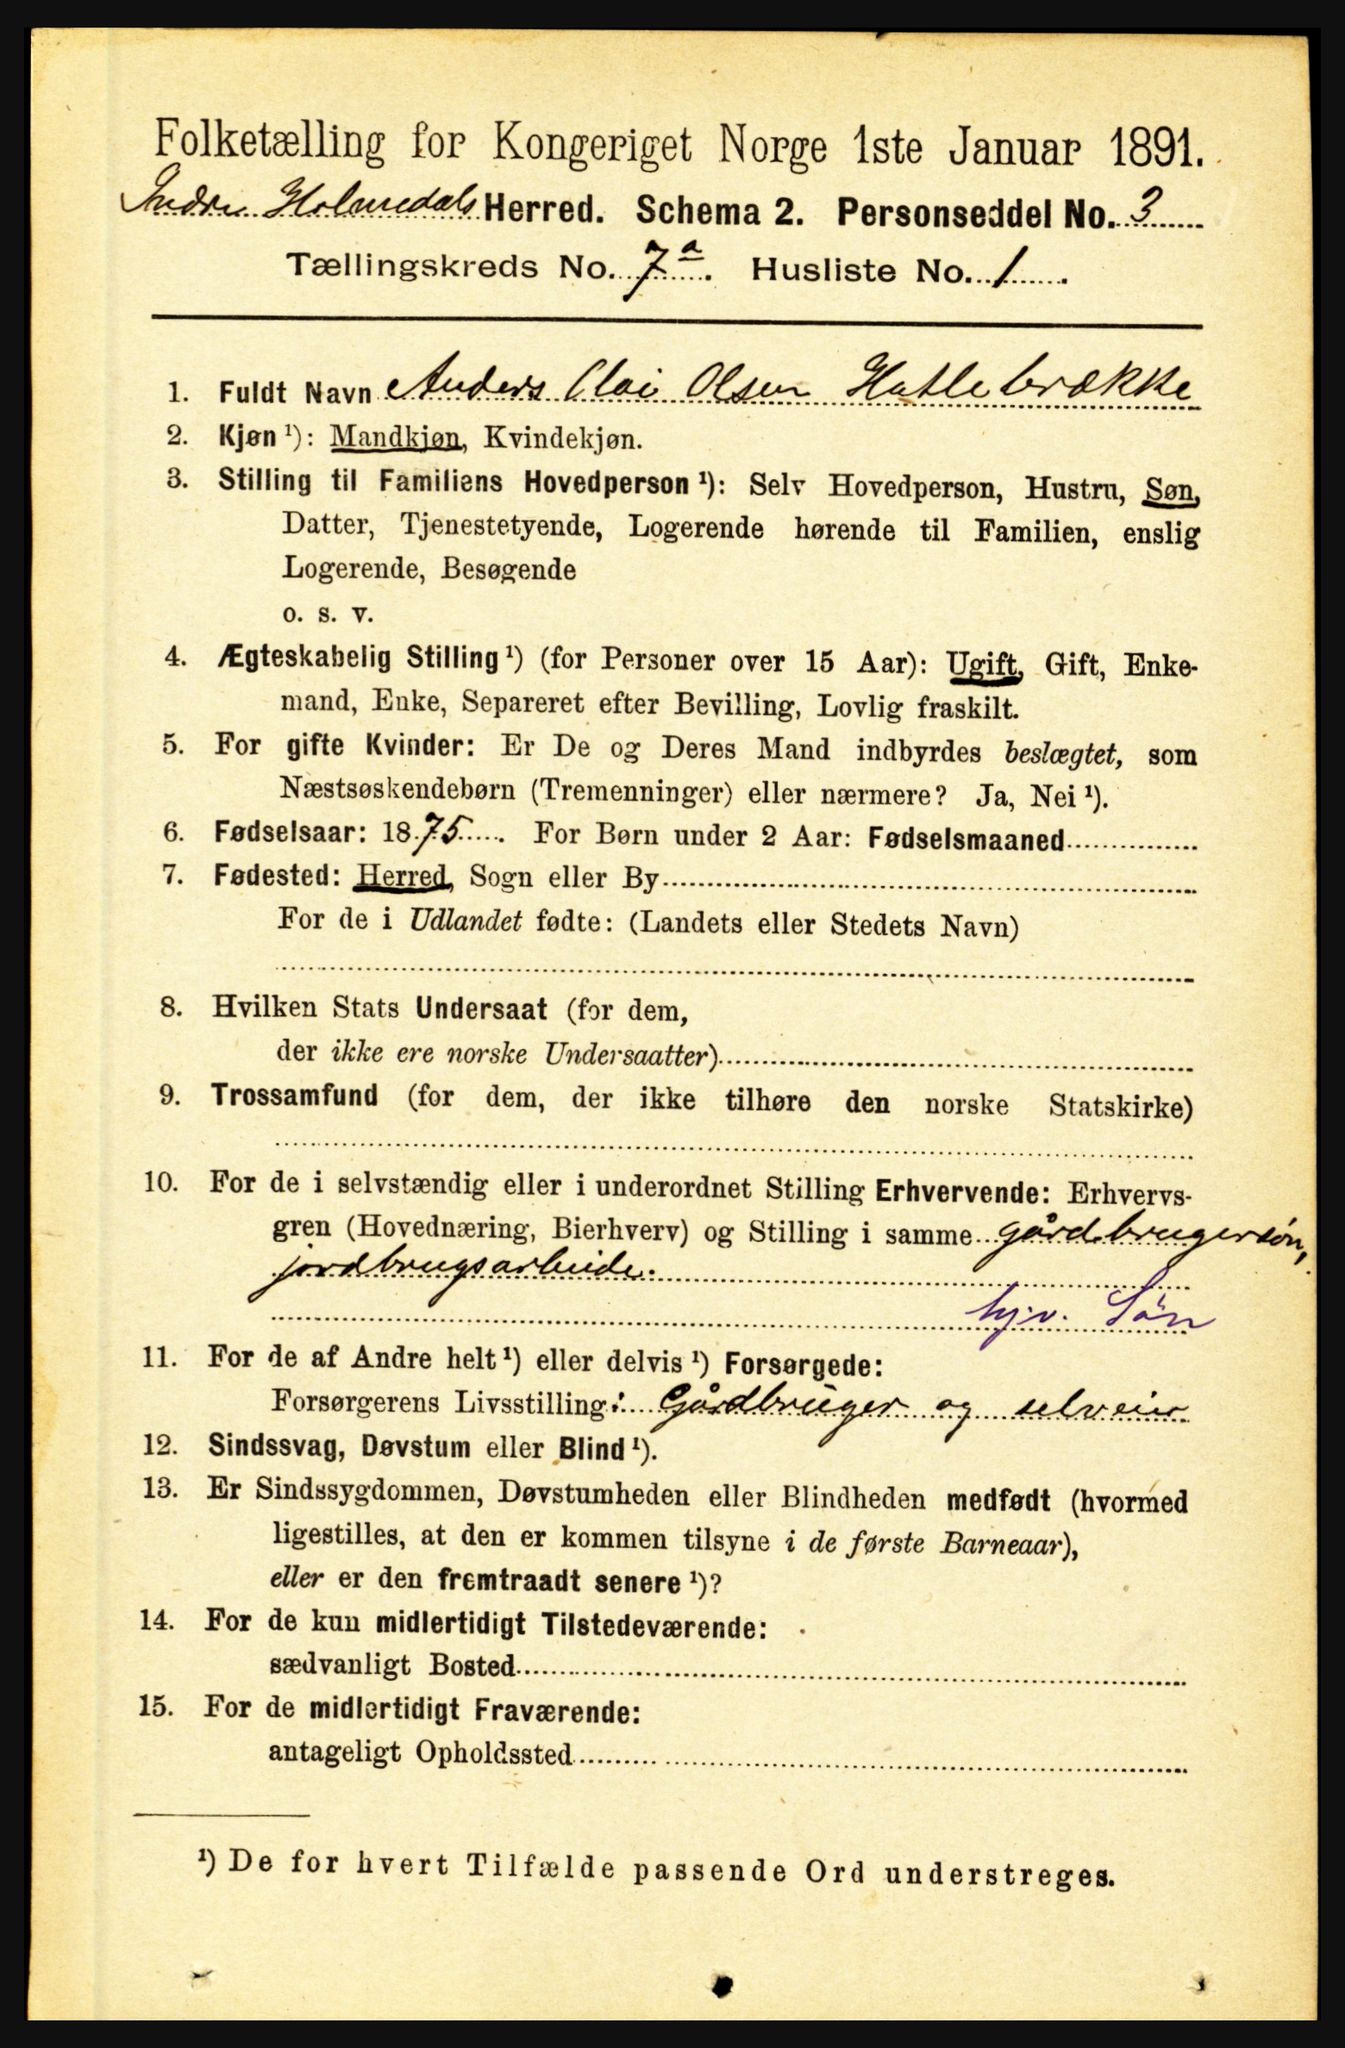 Folketælling for Kongeriget Norge 1ste Januar 1891.
Indre Holmedals Herred. Schema 2. Personseddel No. 3
Tællingskreds No. 7a. Husliste No. 1.
1. Fuldt Navn Anders Olai Olsen Hatlebrække
2. Kjøn ¹): Mandkjøn, Kvindekjøn.
3. Stilling til Familiens Hovedperson ¹): Selv Hovedperson, Hustru, Søn,
Datter, Tjenestetyende, Logerende hørende til Familien, enslig
Logerende, Besøgende
o. s. v.
4. Ægteskabelig Stilling ¹) (for Personer over 15 Aar): Ugift, Gift, Enke-
mand, Enke, Separeret efter Bevilling, Lovlig fraskilt.
5. For gifte Kvinder: Er De og Deres Mand indbyrdes beslægtet, som
Næstsøskendebørn (Tremenninger) eller nærmere? Ja, Nei ¹).
6. Fødselsaar: 1875. For Børn under 2 Aar: Fødselsmaaned
7. Fødested: Herred, Sogn eller By
For de i Udlandet fødte: (Landets eller Stedets Navn)
8. Hvilken Stats Undersaat (for dem,
der ikke ere norske Undersaatter)
9. Trossamfund (for dem, der ikke tilhøre den norske Statskirke)
10. For de i selvstændig eller i underordnet Stilling Erhvervende: Erhvervs-
gren (Hovednæring, Bierhverv) og Stilling i samme gårdbrugersøn,
jordbrugsarbeide.
hjv. Søn
11. For de af Andre helt ¹) eller delvis ¹) Forsørgede:
Forsørgerens Livsstilling: Gårdbruger og selveier
12. Sindssvag, Døvstum eller Blind ¹).
13. Er Sindssygdommen, Døvstumheden eller Blindheden medfødt (hvormed
ligestilles, at den er kommen tilsyne i de første Barneaar),
eller er den fremtraadt senere ¹)?
14. For de kun midlertidigt Tilstedeværende:
sædvanligt Bosted
15. For de midlertidigt Fraværende:
antageligt Opholdssted
¹) De for hvert Tilfælde passende Ord understreges.